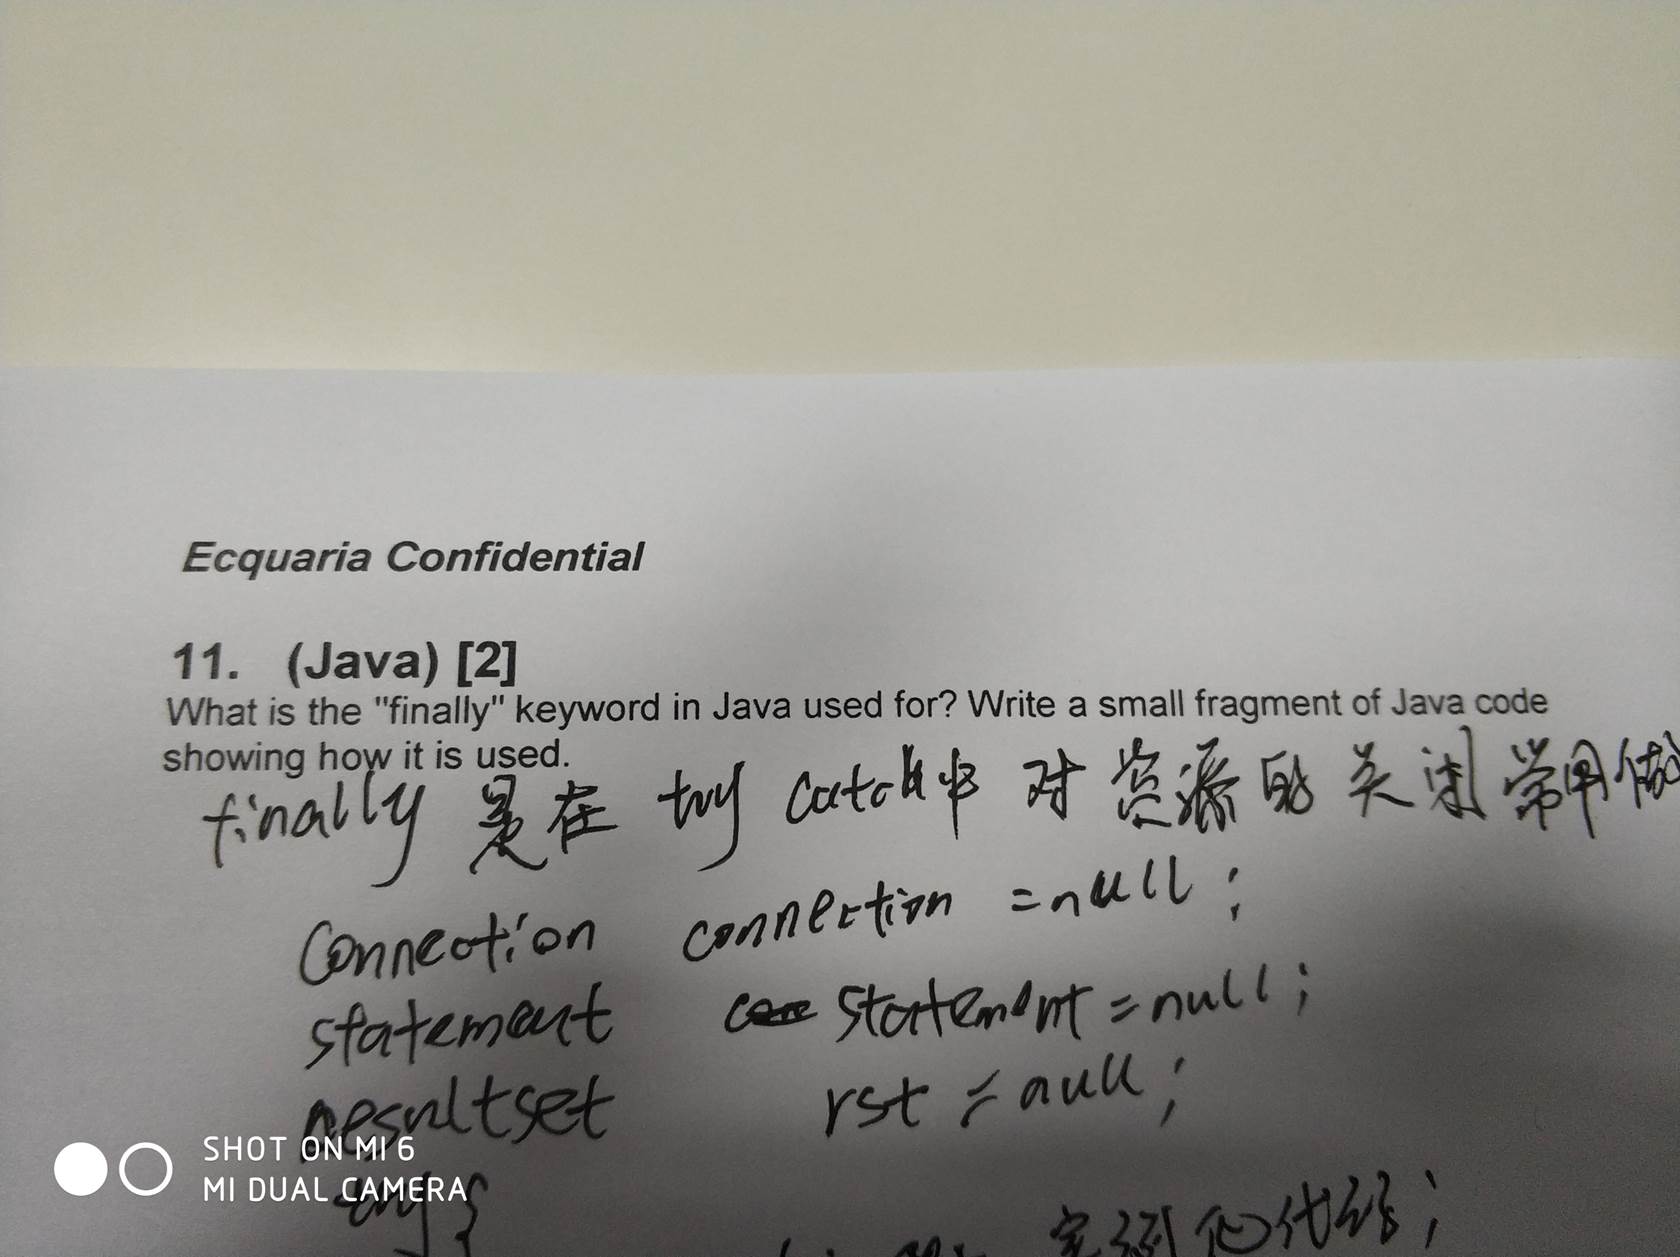 Ecquaria Confidential
11. (Java) [2]
What is the "finally" keyword in Java used for? Write a small fragment of Java code
showing how it is used.
finally 是在 try catch中 对 资源的关闭常用做
Connection connection = null;
statement statement = null;
resultset rst = null;
SHOT ON MI 6
MI DUAL CAMERA
try {
实例化代码;